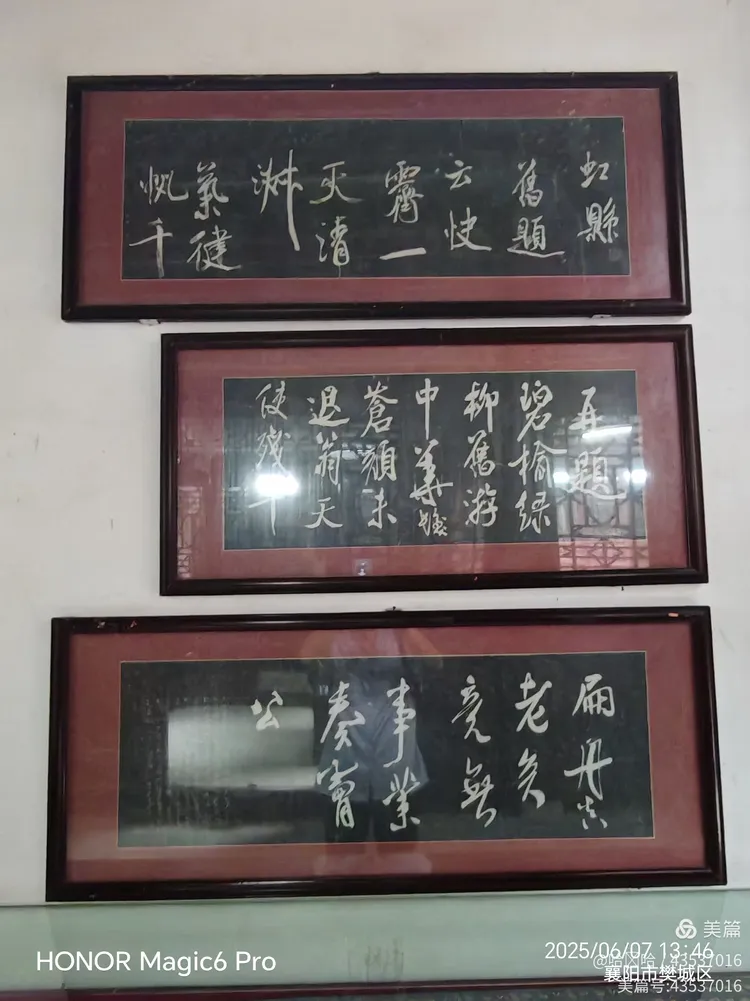 虹縣
舊題
云快
霽一
天清
淑
氣健
帆千
再題
碧榆綠
柳舊游
中華髮
蒼顏未
退翁天
使殘年
扁舟真
老矣
竟無
事業
奏膚
公
美篇
HONOR Magic6 Pro
2025/06/07 13:46
襄阳市樊城区
美篇号:43537016